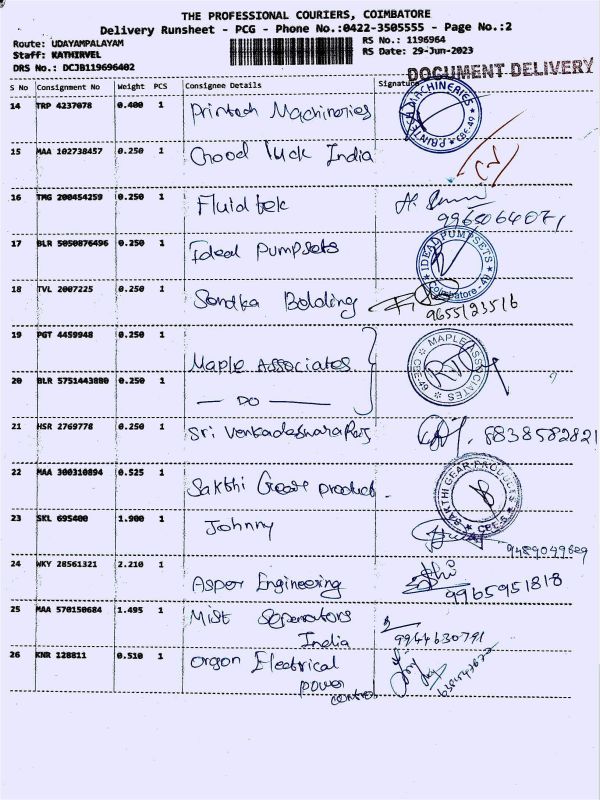 THE PROFESSIONAL COURIERS, COIMBATORE
Delivery Runsheet - PCG - Phone No.:0422-3505555 - Page No.:2
Route: UDAYAMPALAYAM
Staff: KATHIRVEL
DRS No.: DCJB119696402
RS No.: 1196964
RS Date: 29-Jun-2023
DOCUMENT DELIVERY
S No Consignment No Weight PCS Consignee Details Signature
14 TRP 4237078 0.400 1 Printech Machineries
PRINTECH MACHINERIES CBE-49
15 MAA 102738457 0.250 1 Good luck India
16 TMG 200454259 0.250 1 Fluidtek
9965064071
17 BLR 5050876496 0.250 1 Ideal Pumpsets
IDEAL PUMPSETS Coimbatore - 49
18 TVL 2007225 0.250 1
9655123516
19 PGT 4459948 0.250 1 Maple Associates
MAPLE ASSOCIATES CBE-49
20 BLR 5751443880 0.250 1 — DO —
21 HSR 2769778 0.250 1 Sri
8838582821
22 MAA 300310894 0.525 1 Sakthi Gear product
SAKTHI GEAR PRODUCTS CBE-6
23 SKL 695400 1.900 1 Johnny
9489049609
24 WKY 28561321 2.210 1 Asper Engineering
9965951818
25 MAA 570150684 1.495 1 Mist Seperators
India
9944630791
26 KNR 128811 0.510 1 Orgon Electrical
power
control